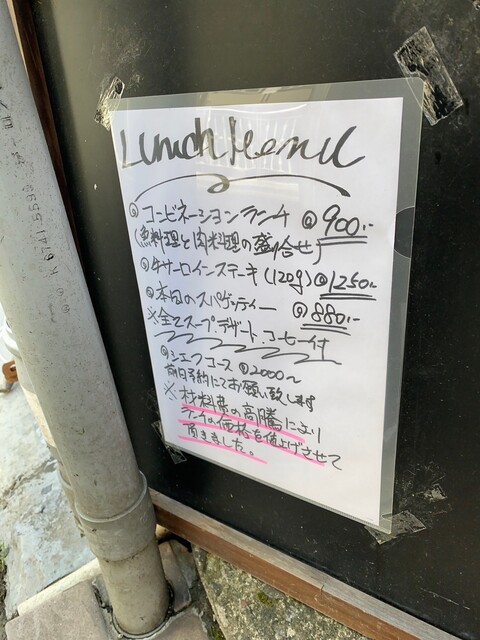 Lunch Menu
◎コンビネーションランチ @900.-
(魚料理と肉料理の盛合せ)
◎牛サーロインステーキ(120g)@1250.-
◎本日のスパゲッティー @880.-
※全てスープ・デザート・コーヒー付
◎シェフコース @2000〜
前日予約にてお願い致します
※材料費の高騰により
ランチの価格を値上げさせて
頂きました。